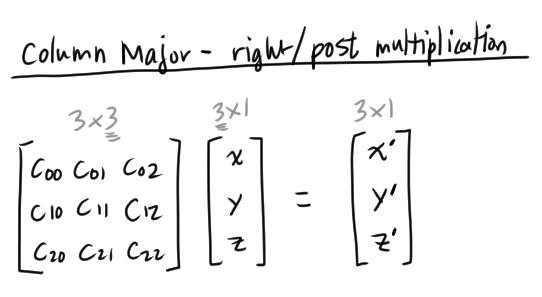 Column Major - right/post multiplication
3x3 3x1 3x1
C00 C01 C02 x x'
C10 C11 C12 y = y'
C20 C21 C22 z z'